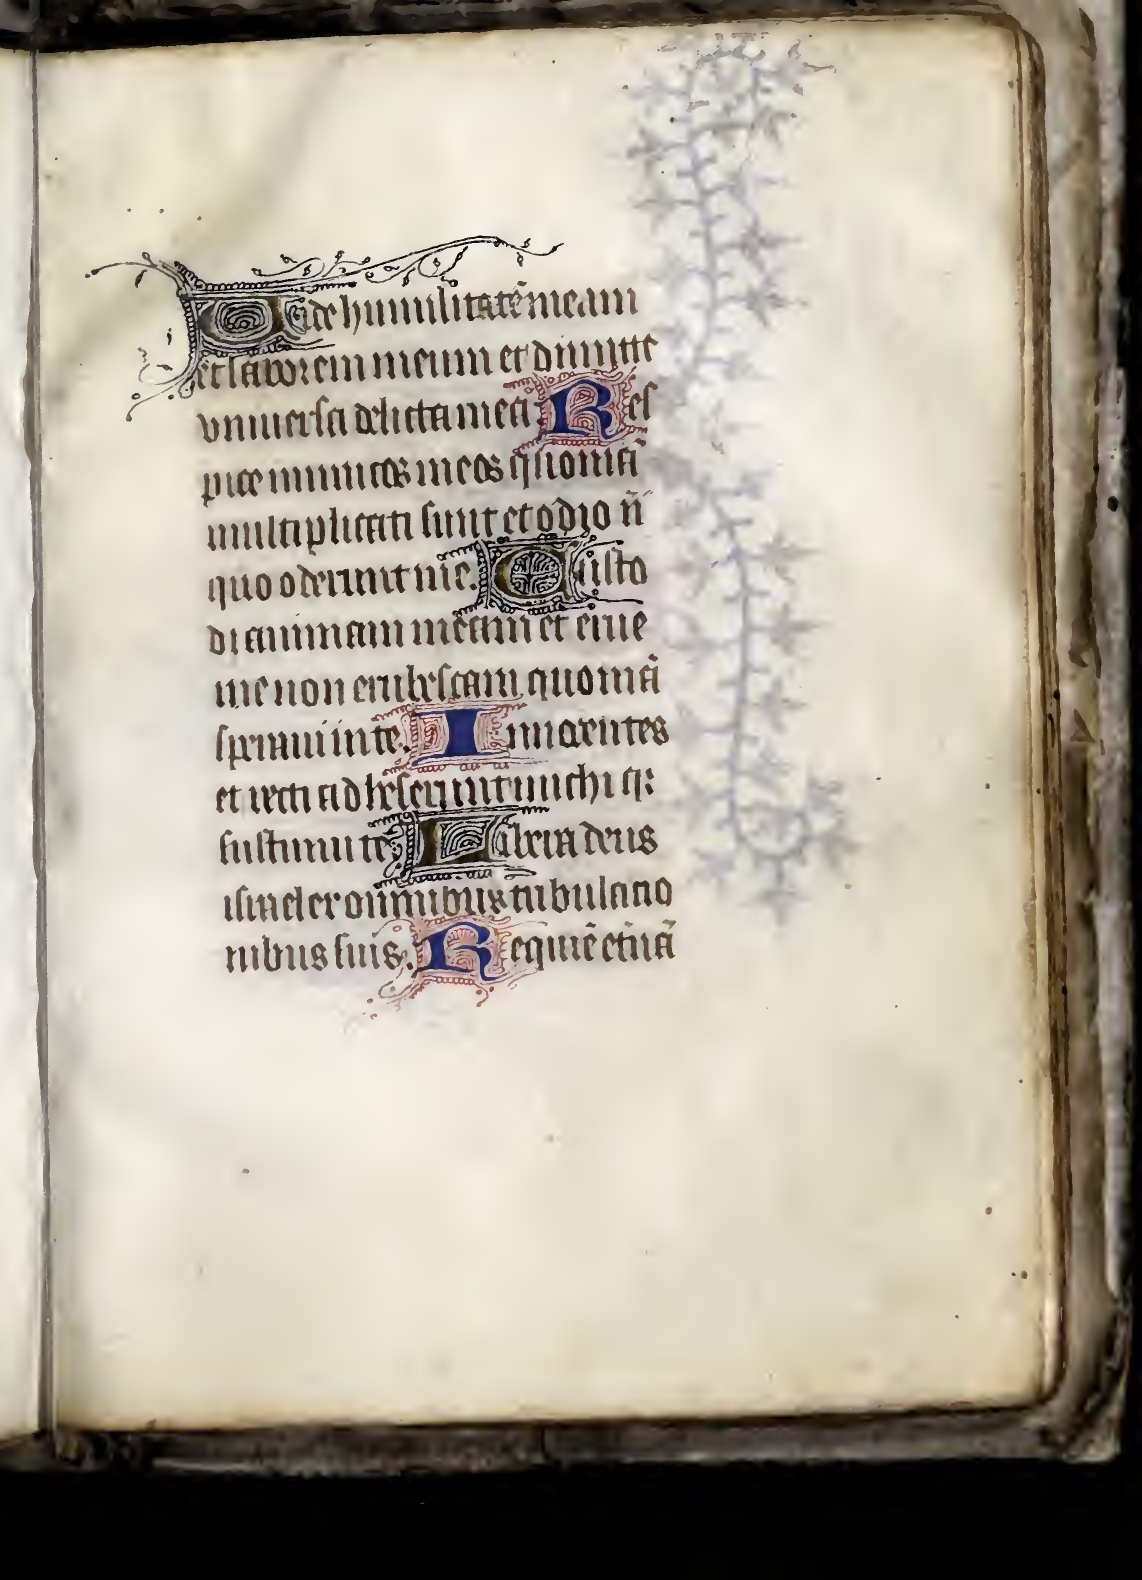 Uide humilitatē meam
et laborem meum et dimitte
vniuersa delicta mea Res
pice inimicos meos quoniā
multiplicati sunt et odio ini
quo oderunt me. Custo
di animam meam et erue
me non erubescam quoniā
speraui in te. Innocentes
et recti adheserunt michi q̄
sustinui te Libera deus
israel ex omnibus tribulatio
nibus suis. Requiē eternā